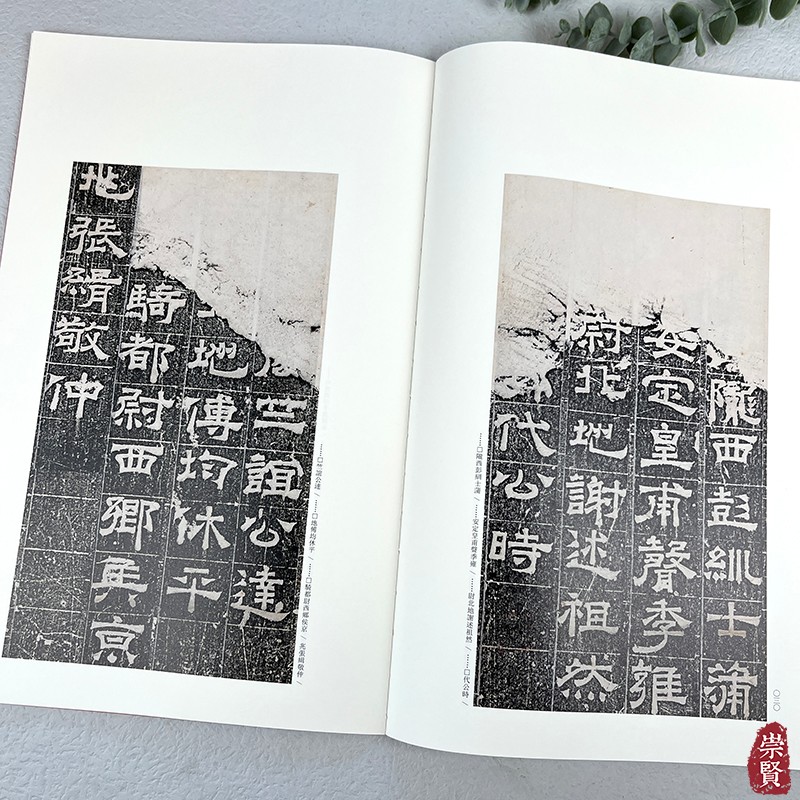 隴西彭紃士蒲
安定皇甫聲季雍
尉北地謝述祖然
代公時
……□隴西彭紃士蒲／……安定皇甫聲季雍／……尉北地謝述祖然／……□代公時／
竺誼公達
地傅均休平
騎都尉西鄉侯京
兆張緝敬仲
……□竺誼公達／……□地傅均休平／……□騎都尉西鄉侯京／兆張緝敬仲／
崇賢